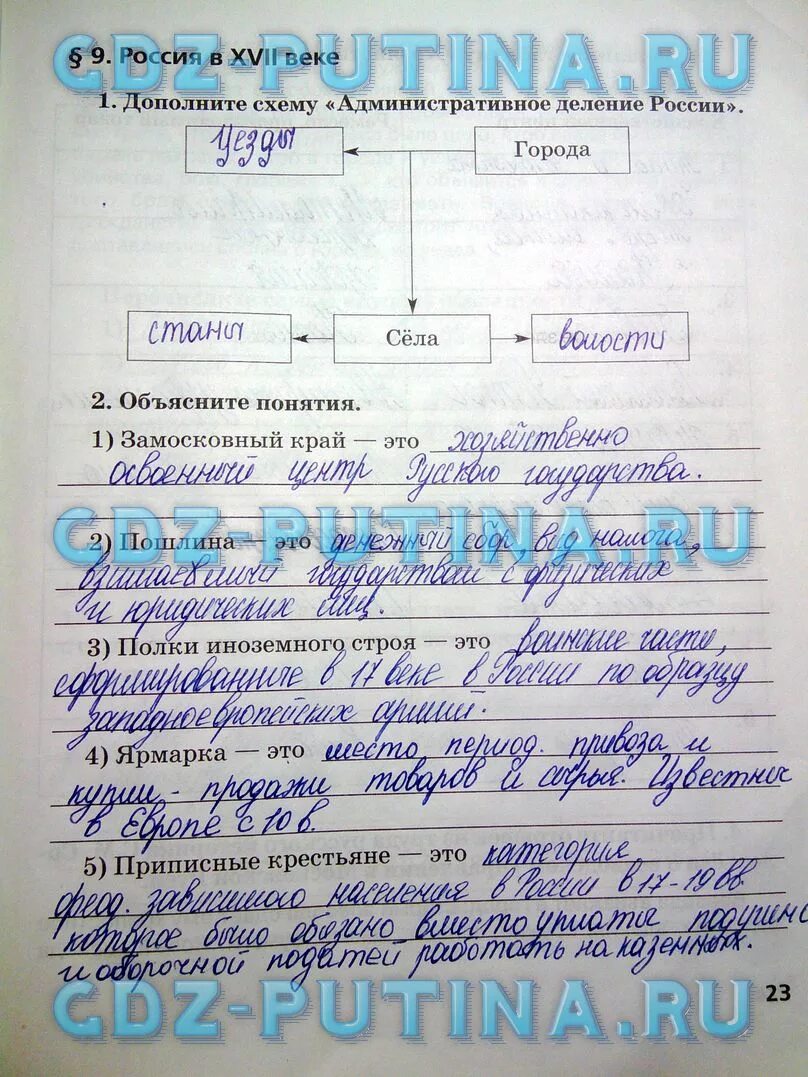 § 9. Россия в XVII веке
GDZ-PUTINA.RU
1. Дополните схему «Административное деление России».
Уезды
Города
станы
Сёла
волости
2. Объясните понятия.
1) Замосковный край — это хозяйственно
освоенный центр Русского государства.
GDZ-PUTINA.RU
2) Пошлина — это денежный сбор, вид налога,
взимаевмый государством с физических
и юридических лиц.
3) Полки иноземного строя — это воинские части,
сформированные в 17 веке в России по образцу
западноевропейских армий.
4) Ярмарка — это место период. привоза и
купли - продажи товаров и сырья. Известны
в Европе с 10 в.
5) Приписные крестьяне — это категория
феод. зависимого населения в России в 17-19 вв.
которое было обязано вместо уплаты подушно
и оброчной податей работать на казенных.
23
GDZ-PUTINA.RU